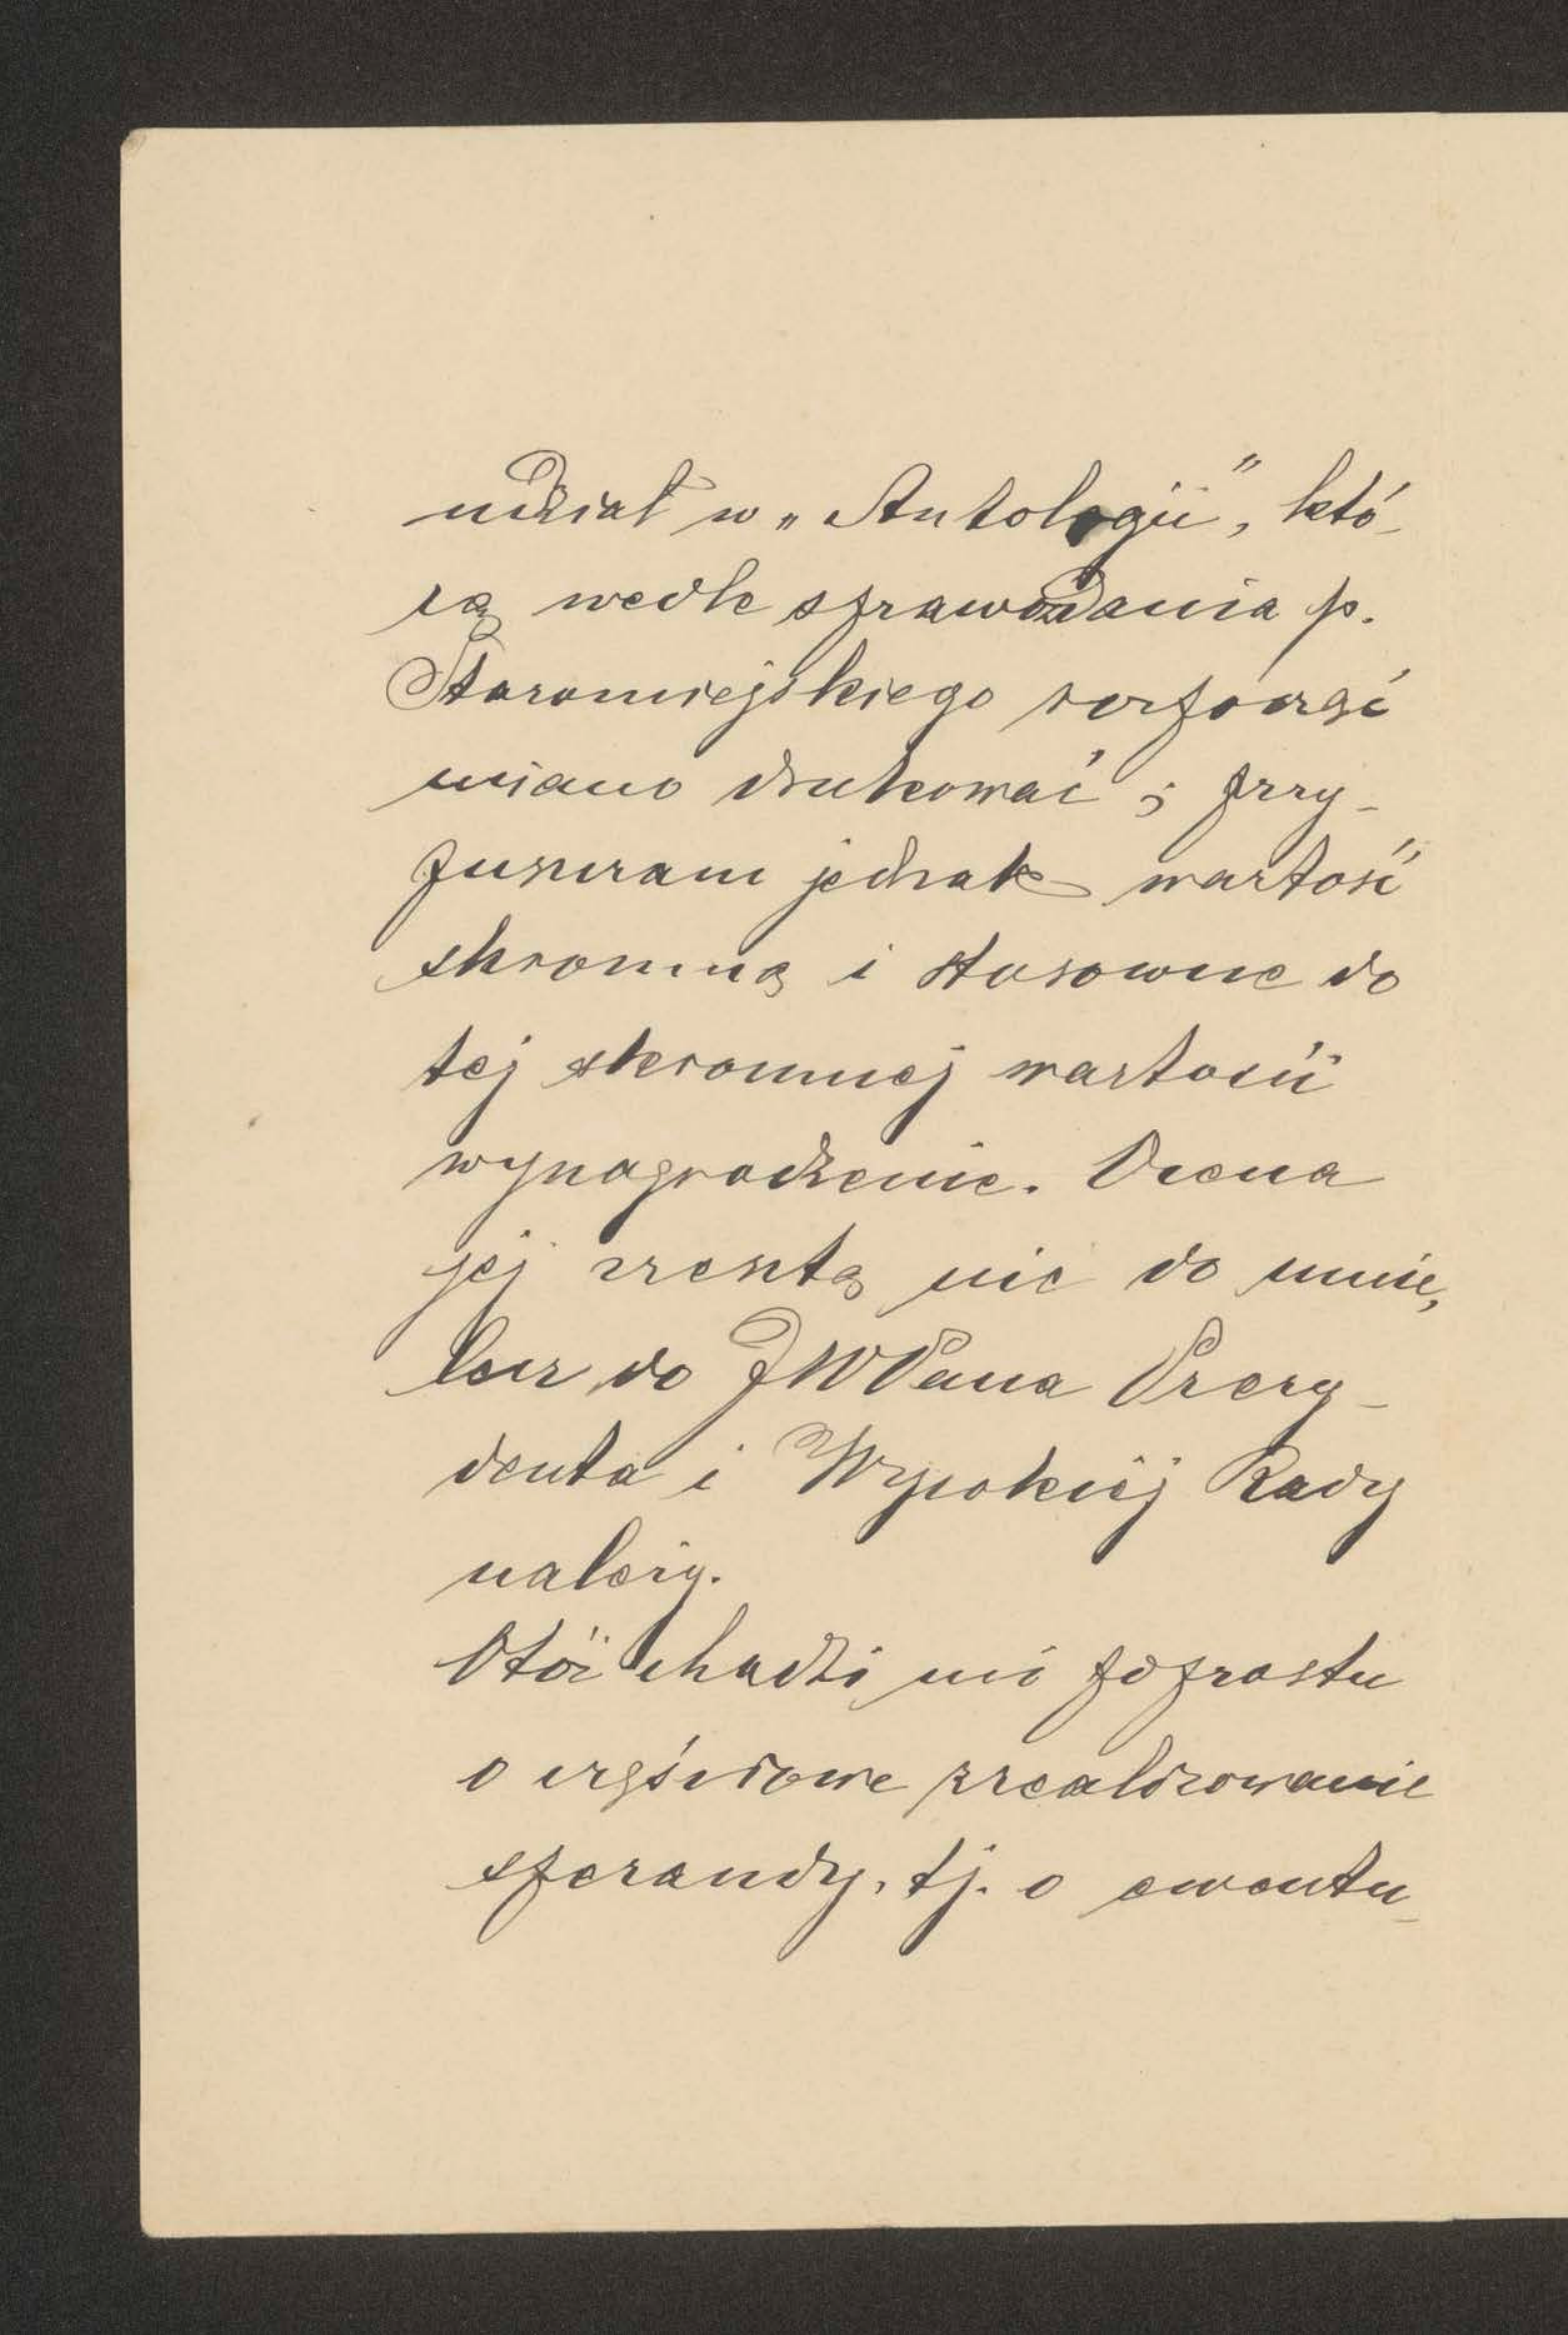 udział w „Antologii”, któ-
rą wedle sprawozdania p.
Staromiejskiego rozpocząć
miano drukować; przy-
puszczam jednak wartość
skromną i stosowne do
tej skromnej wartości
wynagrodzenie. Ocena
jej zresztą nie do mnie,
lecz do JWPana Prezy-
denta i Wysokiej Rady
należy.
Otóż chodzi mi poprostu
o częściowe zrealizowanie
sperandy, tj. o ewentu-